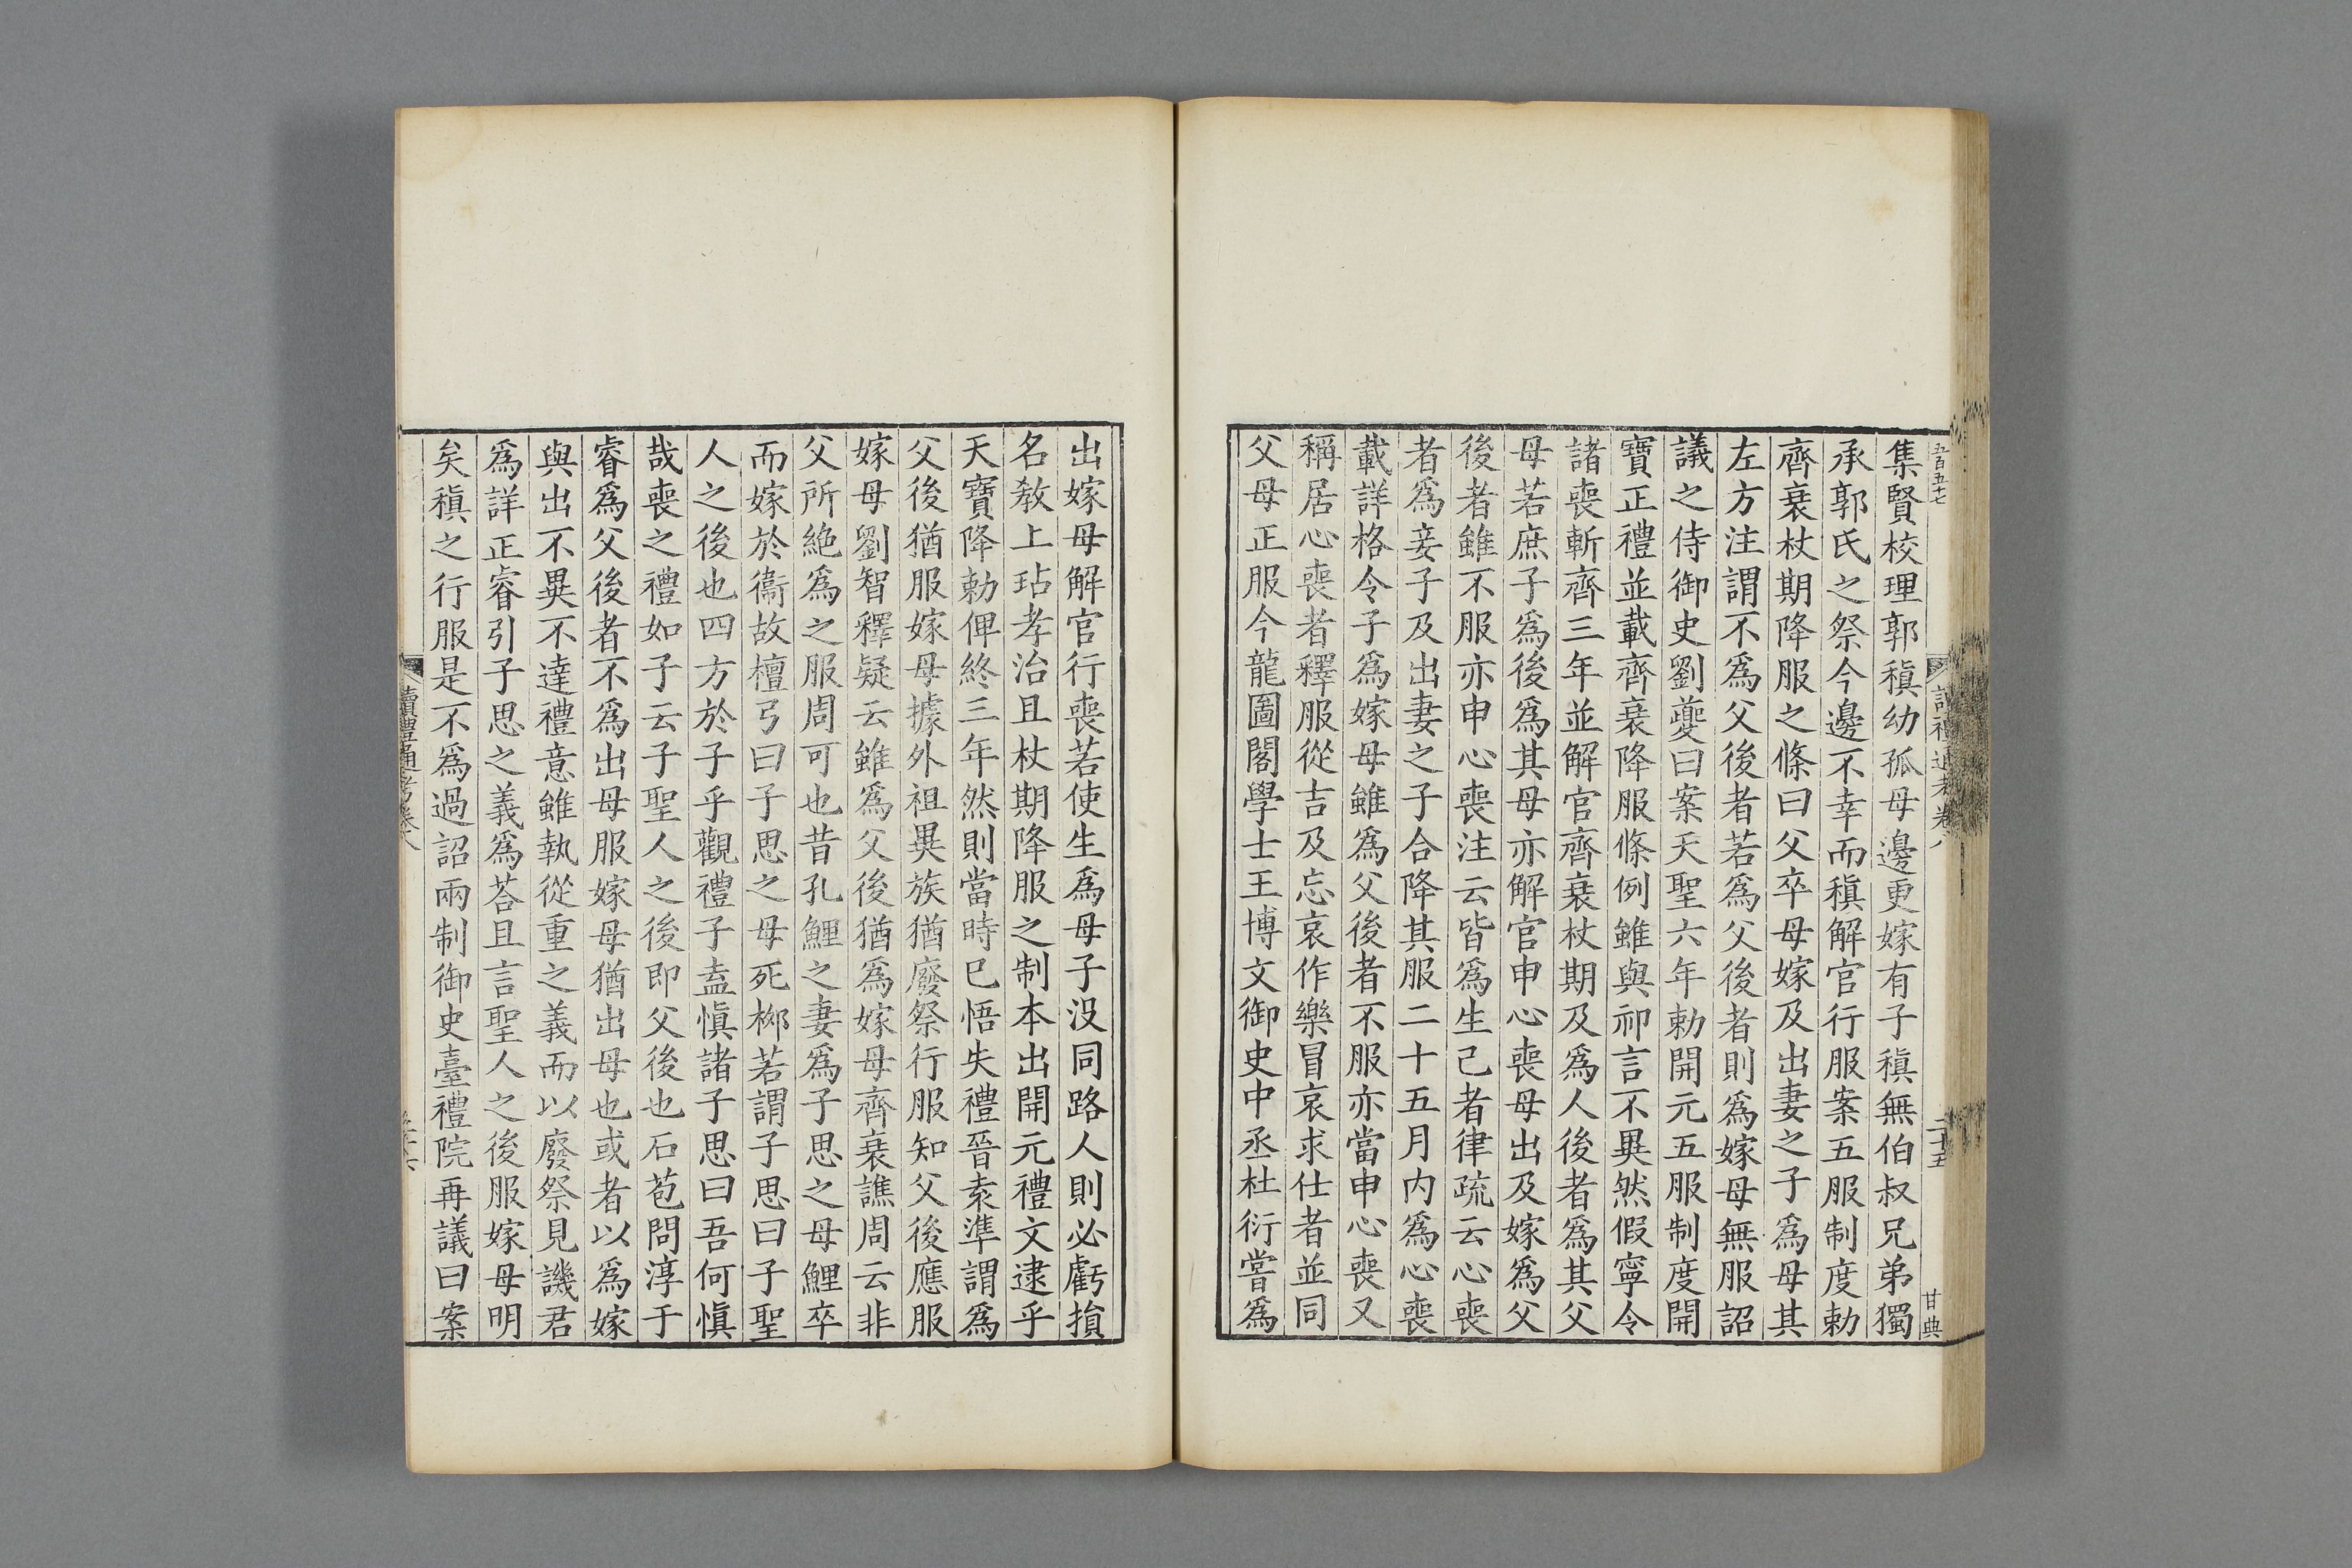 五百五十七
讀禮通考卷八
二十五
甘典
集賢校理郭稹幼孤母邊更嫁有子稹無伯叔兄弟獨
承郭氏之祭今邊不幸而稹解官行服案五服制度勅
齊衰杖期降服之條曰父卒母嫁及出妻之子爲母其
左方注謂不爲父後者若爲父後者則爲嫁母無服詔
議之侍御史劉夔曰案天聖六年勅開元五服制度開
寶正禮並載齊衰降服條例雖與祁言不異然假寧令
諸喪斬齊三年並解官齊衰杖期及爲人後者爲其父
母若庶子爲後爲其母亦解官申心喪母出及嫁爲父
後者雖不服亦申心喪注云皆爲生己者律疏云心喪
者爲妾子及出妻之子合降其服二十五月内爲心喪
載詳格令子爲嫁母雖爲父後者不服亦當申心喪又
稱居心喪者釋服從吉及忘哀作樂冒哀求仕者並同
父母正服今龍圖閣學士王博文御史中丞杜衍嘗爲
出嫁母解官行喪若使生爲母子没同路人則必虧損
名敎上玷孝治且杖期降服之制本出開元禮文逮乎
天寶降勅俾終三年然則當時已悟失禮晉袁準謂爲
父後猶服嫁母據外祖異族猶廢祭行服知父後應服
嫁母劉智釋疑云雖爲父後猶爲嫁母齊衰譙周云非
父所絶爲之服周可也昔孔鯉之妻爲子思之母鯉卒
而嫁於衞故檀弓曰子思之母死栁若謂子思曰子聖
人之後也四方於子乎觀禮子盍慎諸子思曰吾何慎
哉喪之禮如子云子聖人之後即父後也石苞問淳于
睿爲父後者不爲出母服嫁母猶出母也或者以爲嫁
與出不異不達禮意雖執從重之義而以廢祭見譏君
爲詳正睿引子思之義爲荅且言聖人之後服嫁母明
矣稹之行服是不爲過詔兩制御史臺禮院再議曰案
讀禮通考卷八